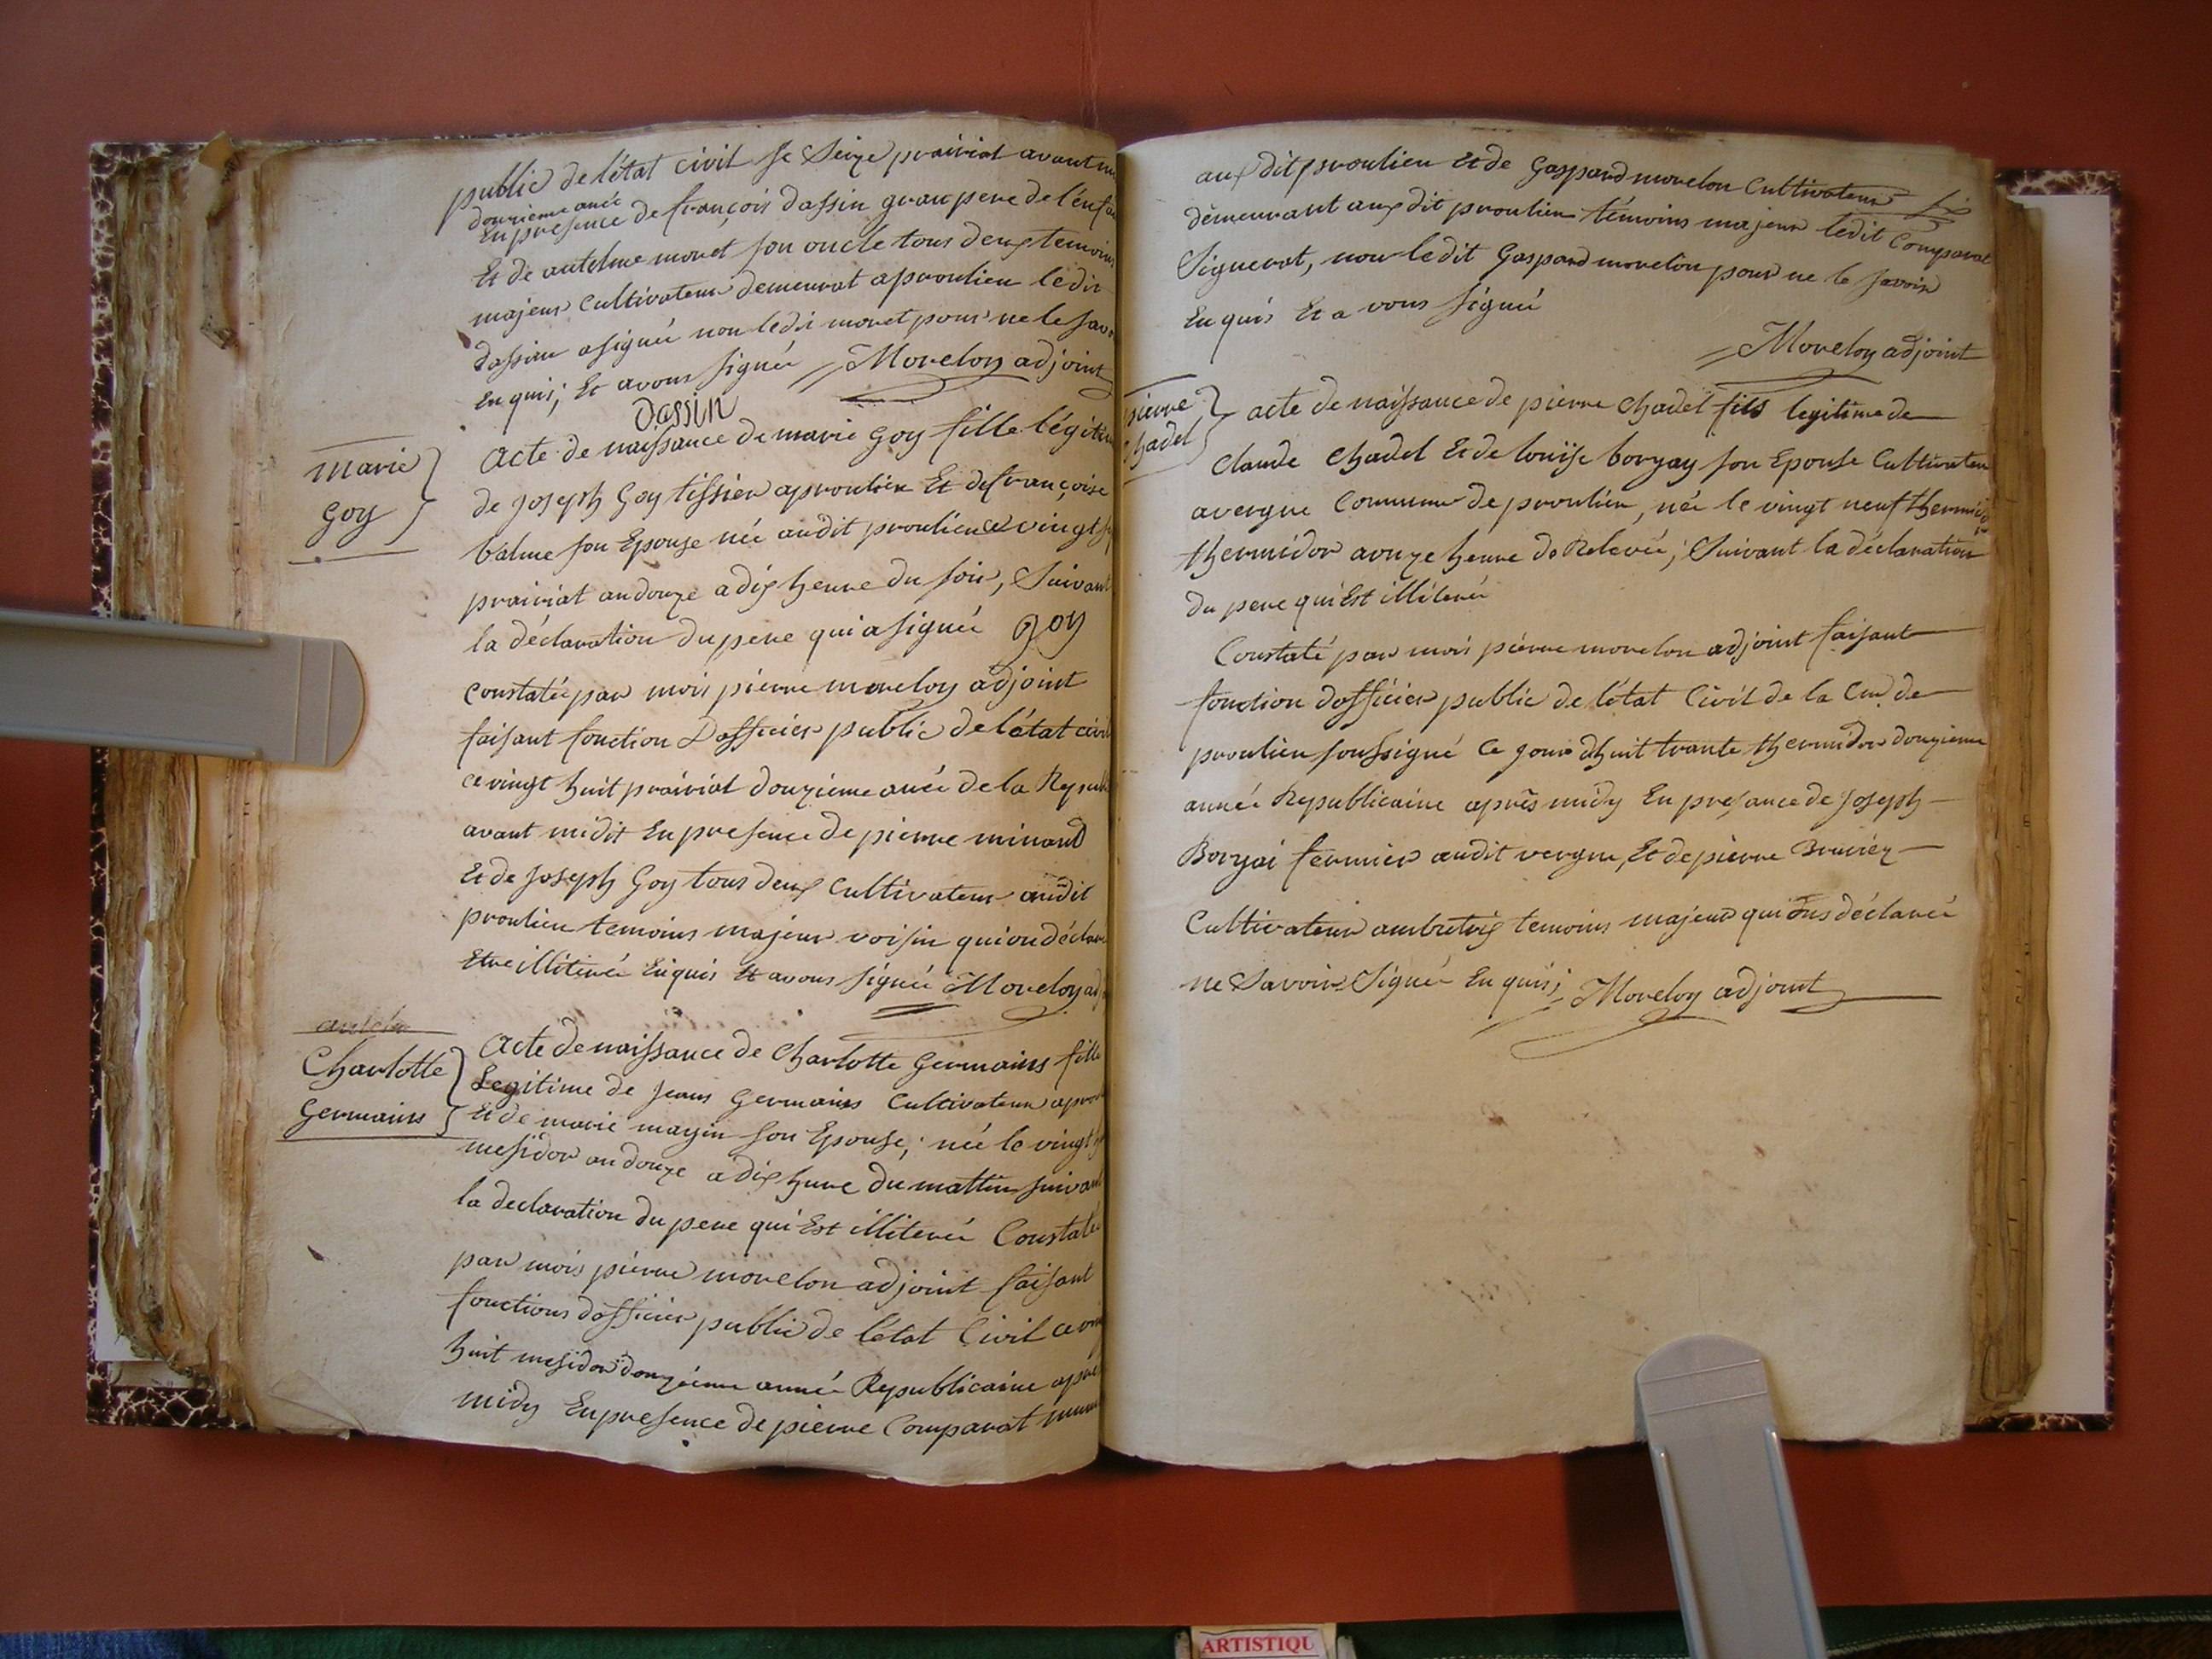 public de l'état civil se Seize prairial avant
douzieme anée
En presence de françois dassin gran pere de l'enfa
Et de antelme moret son oncle tous deux temoins
majeur Cultivateur demeurat aproulieu ledit
dassin asignée non ledit moret pour ne le sav
enquis; Et avons signée Morelon adjoint
Dassin
marie
goy
Acte de naissance de marie goy fille légitim
de joseph Goy tissier aproulieu Et de françoise
balme son Epouse née audit proulieu ce vingt
prairial an douze a dix heure du soir, Suivant
la déclaration du pere qui a signée goy
constatée par mois pierre morelon adjoint
faisant fonction Dofficier public de l'état civil
ce vingt huit prairial douzieme anée de la Repub
avant midit En presence de pierre minand
Et de Joseph Goy tous deux Cultivateur audit
proulieu temoins majeur voisin qui on déclar
Etre illiterée Enquis Et avons signée Morelon ad
Charlotte
Germains
Acte de naissance de Charlotte Germains fille
Legitime de Jeans Germains Cultivateur aprou
Et de marie magin son Epouse; née le vingt
mesidor an douze a dix hure du mattin suivant
la declaration du pere qui Est illiterée Constaté
par mois piérre morelon adjoint faisant
fonctions dofficier public de l'état Civil ce vin
huit mesidor douziéme année Republicaine après
midy En presence de pierre Comparat
aux dit proulieu Et de Gaspard morelon Cultivateur
démeurant aux dit proulieu témoins majeur ledit Comparat
Signerat, non ledit Gaspard morelon pour ne le savoir
Enquis Et a vons signée
Morelon adjoint
pierre
Chadel
acte de naissance de pierre Chadel fils legitime de
Claude Chadel Et de louïse borgay son Epouse Cultivateu
avergne Commune de proulieu, née le vingt neuf thermid
thermidor a onze heure de Relevée; Suivant la déclaration
du pere qui Est illiterée
Constaté par mois piérre morelon adjoint faisant
fonction dofficier public de l'état Civil de la Cne de
proulieu soussigné Ce jour dhuit trante thermidor douzieme
année Republicaine après midy En presance de joseph
Borgai fermier audit vergne, Et de pierre Bruiréy
Cultivateur temoins majeur qui ons déclarée
ne Savoir Signée Enquis; Morelon adjoint
ARTISTIQU